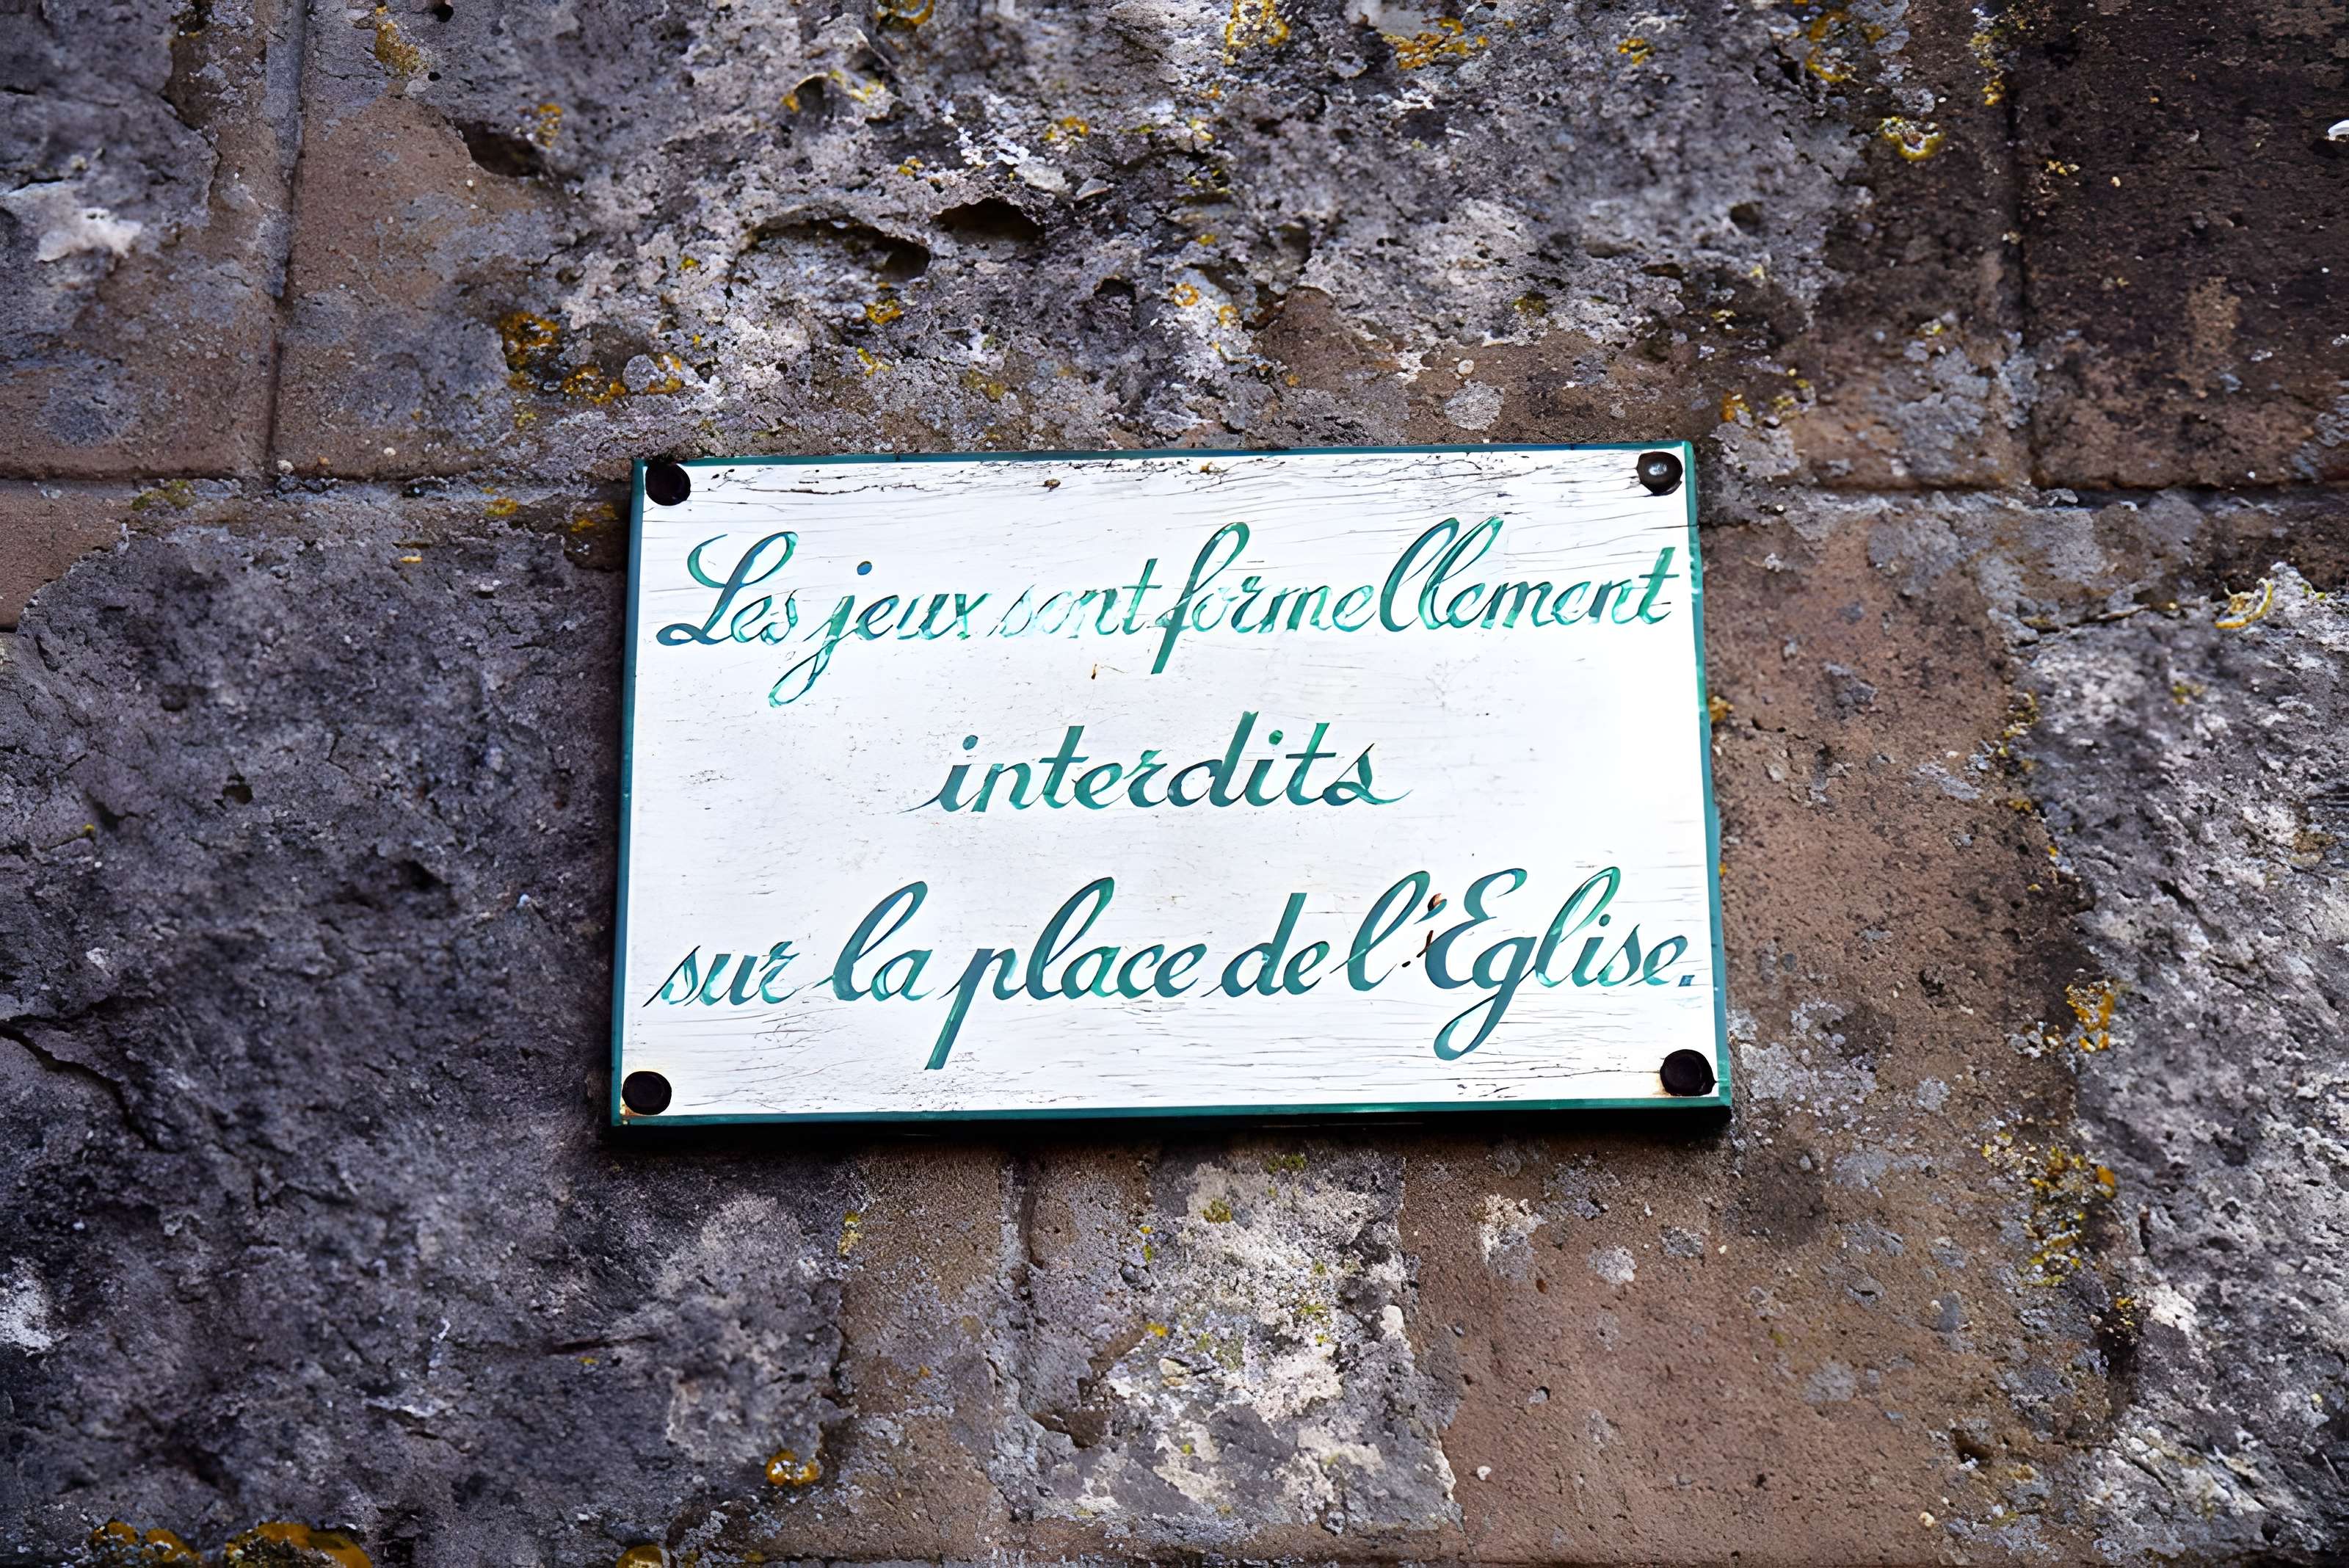 Les jeux sont formellement
interdits
sur la place de l'Eglise.